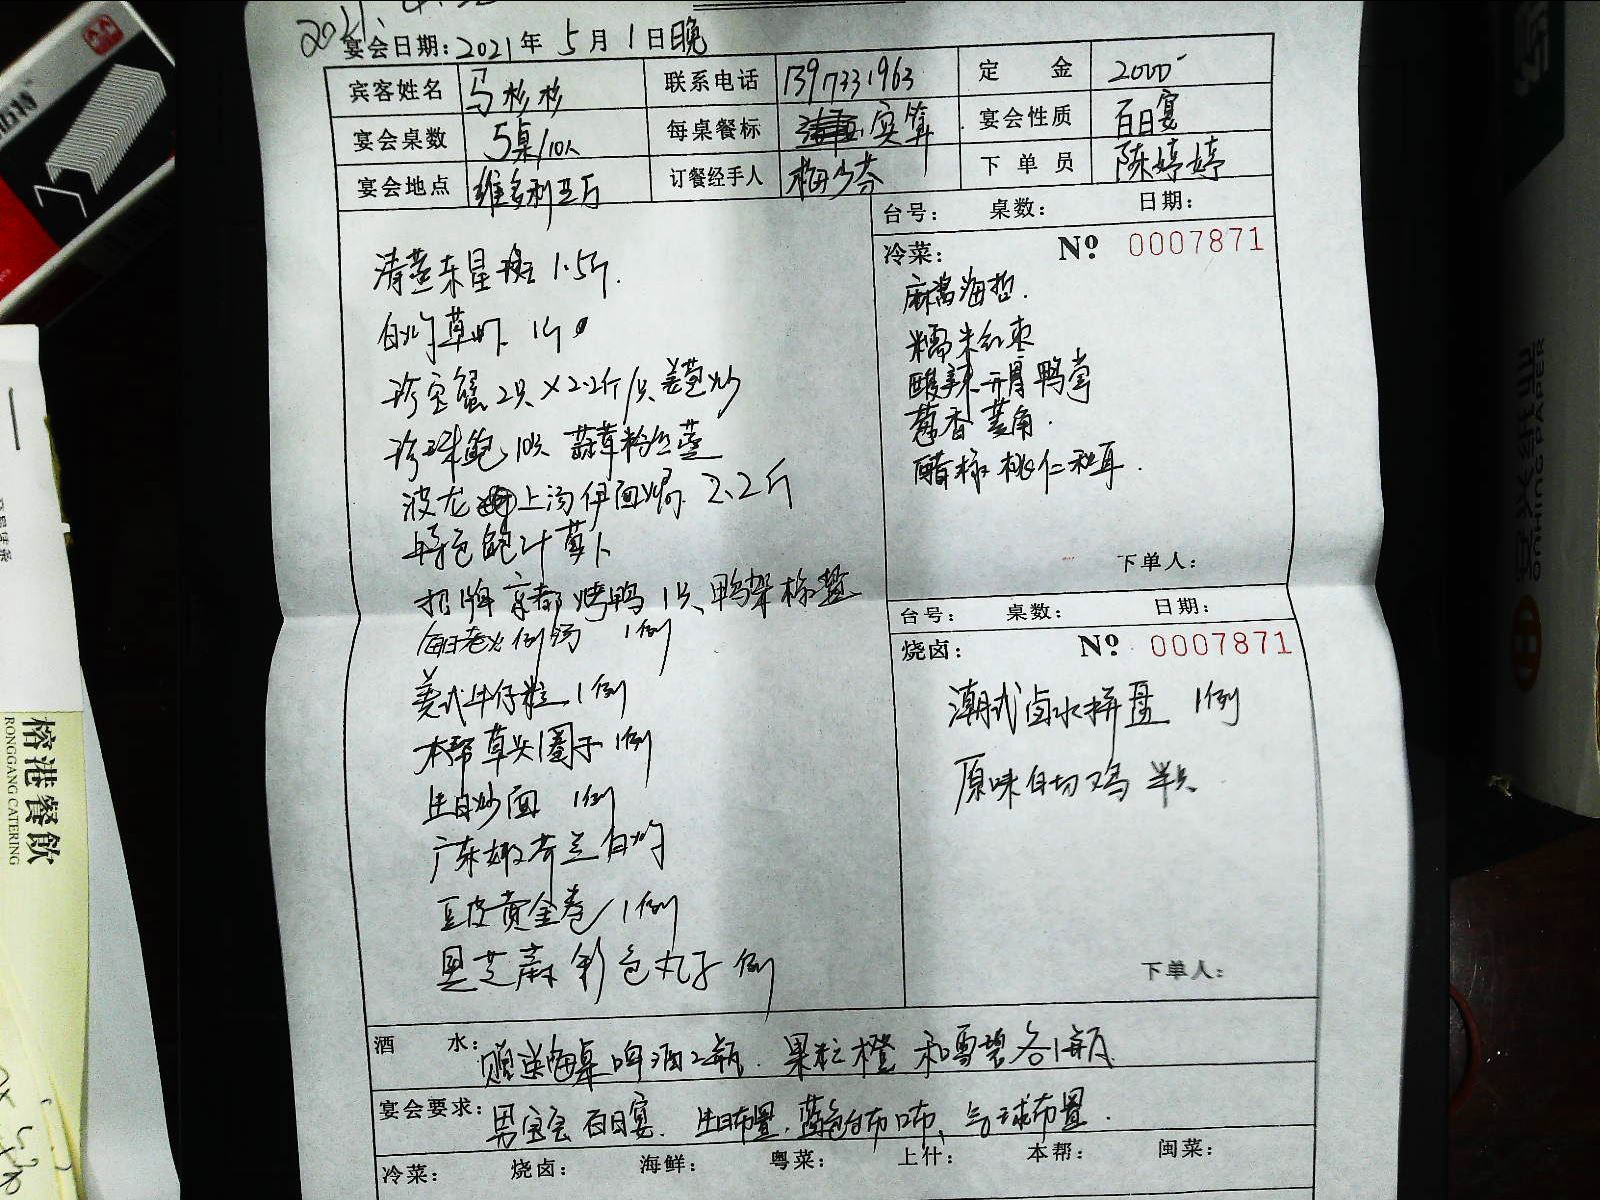 宴会日期: 2021年 5月 1日晚
宾客姓名 马杉杉 联系电话 1397331963 定金 2000-
宴会桌数 5桌/10人 每桌餐标 实算 宴会性质 百日宴
宴会地点 维多利亚厅 订餐经手人 梅少芬 下单员 陈婷婷
台号: 桌数: 日期:
冷菜: Nº 0007871
麻酱海哲.
糯米红枣
酸辣开胃鸭掌
葱香菱角.
醋椒桃仁秋耳.
下单人:
清蒸东星斑 1.5斤.
白灼草虾 1斤
珍宝蟹 2只×2.2斤/只 姜葱炒
珍珠鲍 10只 蒜茸粉丝蒸
波龙 上汤伊面焗 2.2斤
特色鲍汁萝卜
招牌京都烤鸭 1只、鸭架椒盐
每日老火例汤 1例
美式牛仔粒 1例
本帮草头圈子 1例
生日炒面 1例
广东芥兰白灼
豆皮黄金卷 1例
黑芝麻彩色丸子 例
台号: 桌数: 日期:
烧卤: Nº 0007871
潮式卤水拼盘 1例
原味白切鸡 半只
下单人:
酒水: 赠送每桌啤酒2瓶. 果粒橙和雪碧各1瓶
宴会要求: 男宝宝百日宴. 生日布置. 蓝色台布口布、气球布置.
冷菜: 烧卤: 海鲜: 粤菜: 上什: 本帮: 闽菜:
榕港餐飲
RONGGANG CATERING